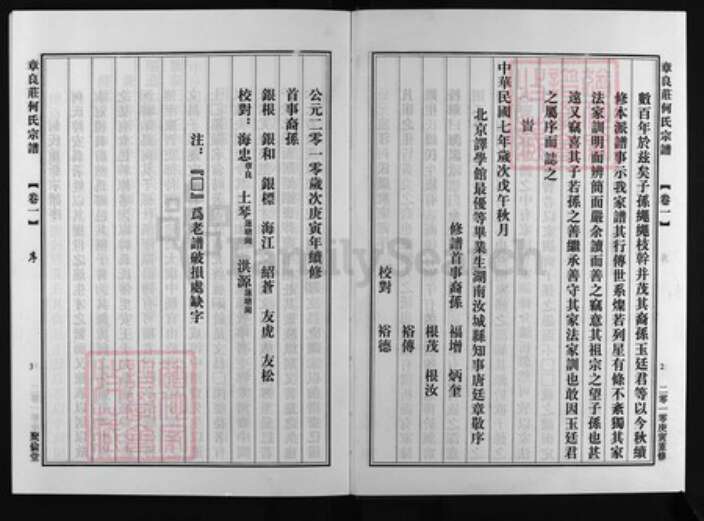 章良莊何氏宗譜
【卷一】
2
二零一零庚寅重修
數百年於茲矣子孫繩繩枝幹并茂其裔孫玉廷君等以今秋續
修本派譜事示我家譜其行傳世系燦若列星有條不紊獨其家
法家訓明而辨簡而嚴余讀而善之竊意其祖宗之望子孫也甚
遠又竊喜其子若孫之善繼承善守其家法家訓也敢因玉廷君
之屬序而誌之
旹
中華民國七年歲次戊午秋月
北京譯學館最優等畢業生湖南汝城縣知事唐廷章敬序
修譜首事裔孫 福增 炳奎
根茂 根汝
裕傳
校對 裕德
公元二零一零歲次庚寅年續修
首事裔孫
銀根 銀和 銀標 海江 紹蒼 友虎 友松
校對：海忠章良 土琴蓮塘 洪源蓮塘
注：『□』爲老譜破損處缺字
章良莊何氏宗譜
【卷一】
序
3
聚倫堂
FamilySearch